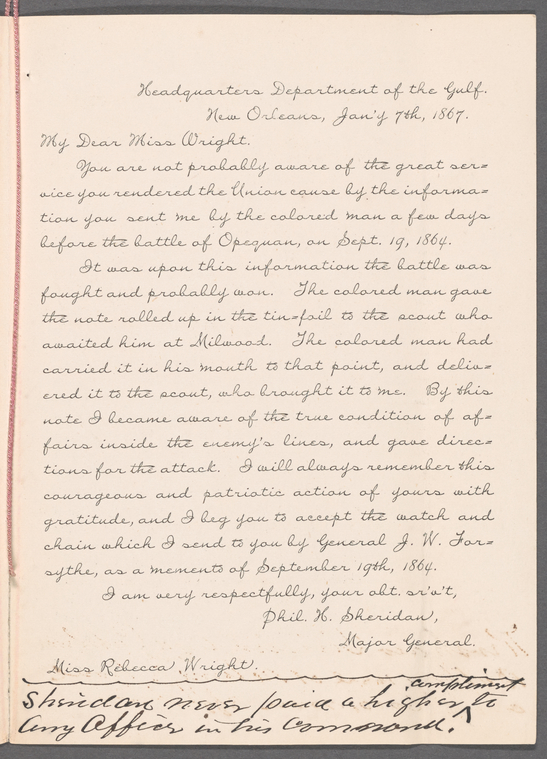 Headquarters Department of the Gulf.
New Orleans, Jan'y 7th, 1867.
My Dear Miss Wright.
You are not probably aware of the great ser=
vice you rendered the Union cause by the informa=
tion you sent me by the colored man a few days
before the battle of Opequan, on Sept. 19, 1864.
It was upon this information the battle was
fought and probably won. The colored man gave
the note rolled up in the tin=foil to the scout who
awaited him at Milwood. The colored man had
carried it in his mouth to that point, and deliv=
ered it to the scout, who brought it to me. By this
note I became aware of the true condition of af=
fairs inside the enemy's lines, and gave direc=
tions for the attack. I will always remember this
courageous and patriotic action of yours with
gratitude, and I beg you to accept the watch and
chain which I send to you by General J. W. For=
sythe, as a memento of September 19th, 1864.
I am very respectfully, your obt. sr'v't,
Phil. H. Sheridan,
Major General.
Miss Rebecca Wright.
Sheridan never paid a higher compliment to
any Officer in his Command.